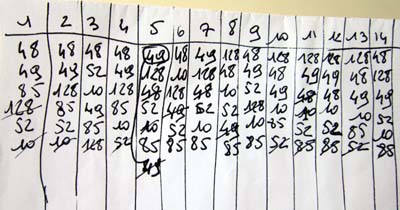 1 2 3 4 5 6 7 8 9 10 11 12 13 14
48 48 48 48 49 48 49 128 48 128 128 128 128 48
49 49 52 49 128 10 128 48 49 48 48 128
85 128 10 128 48 128 48 48 49 49 48 49
128 85 49 85 52 49 52 52 128 10 10
52 52 85 10 10 52 10 49 10 85 52 52 85 52
10 10 128 52 85 85 85 85 85 52 85 85 10 85